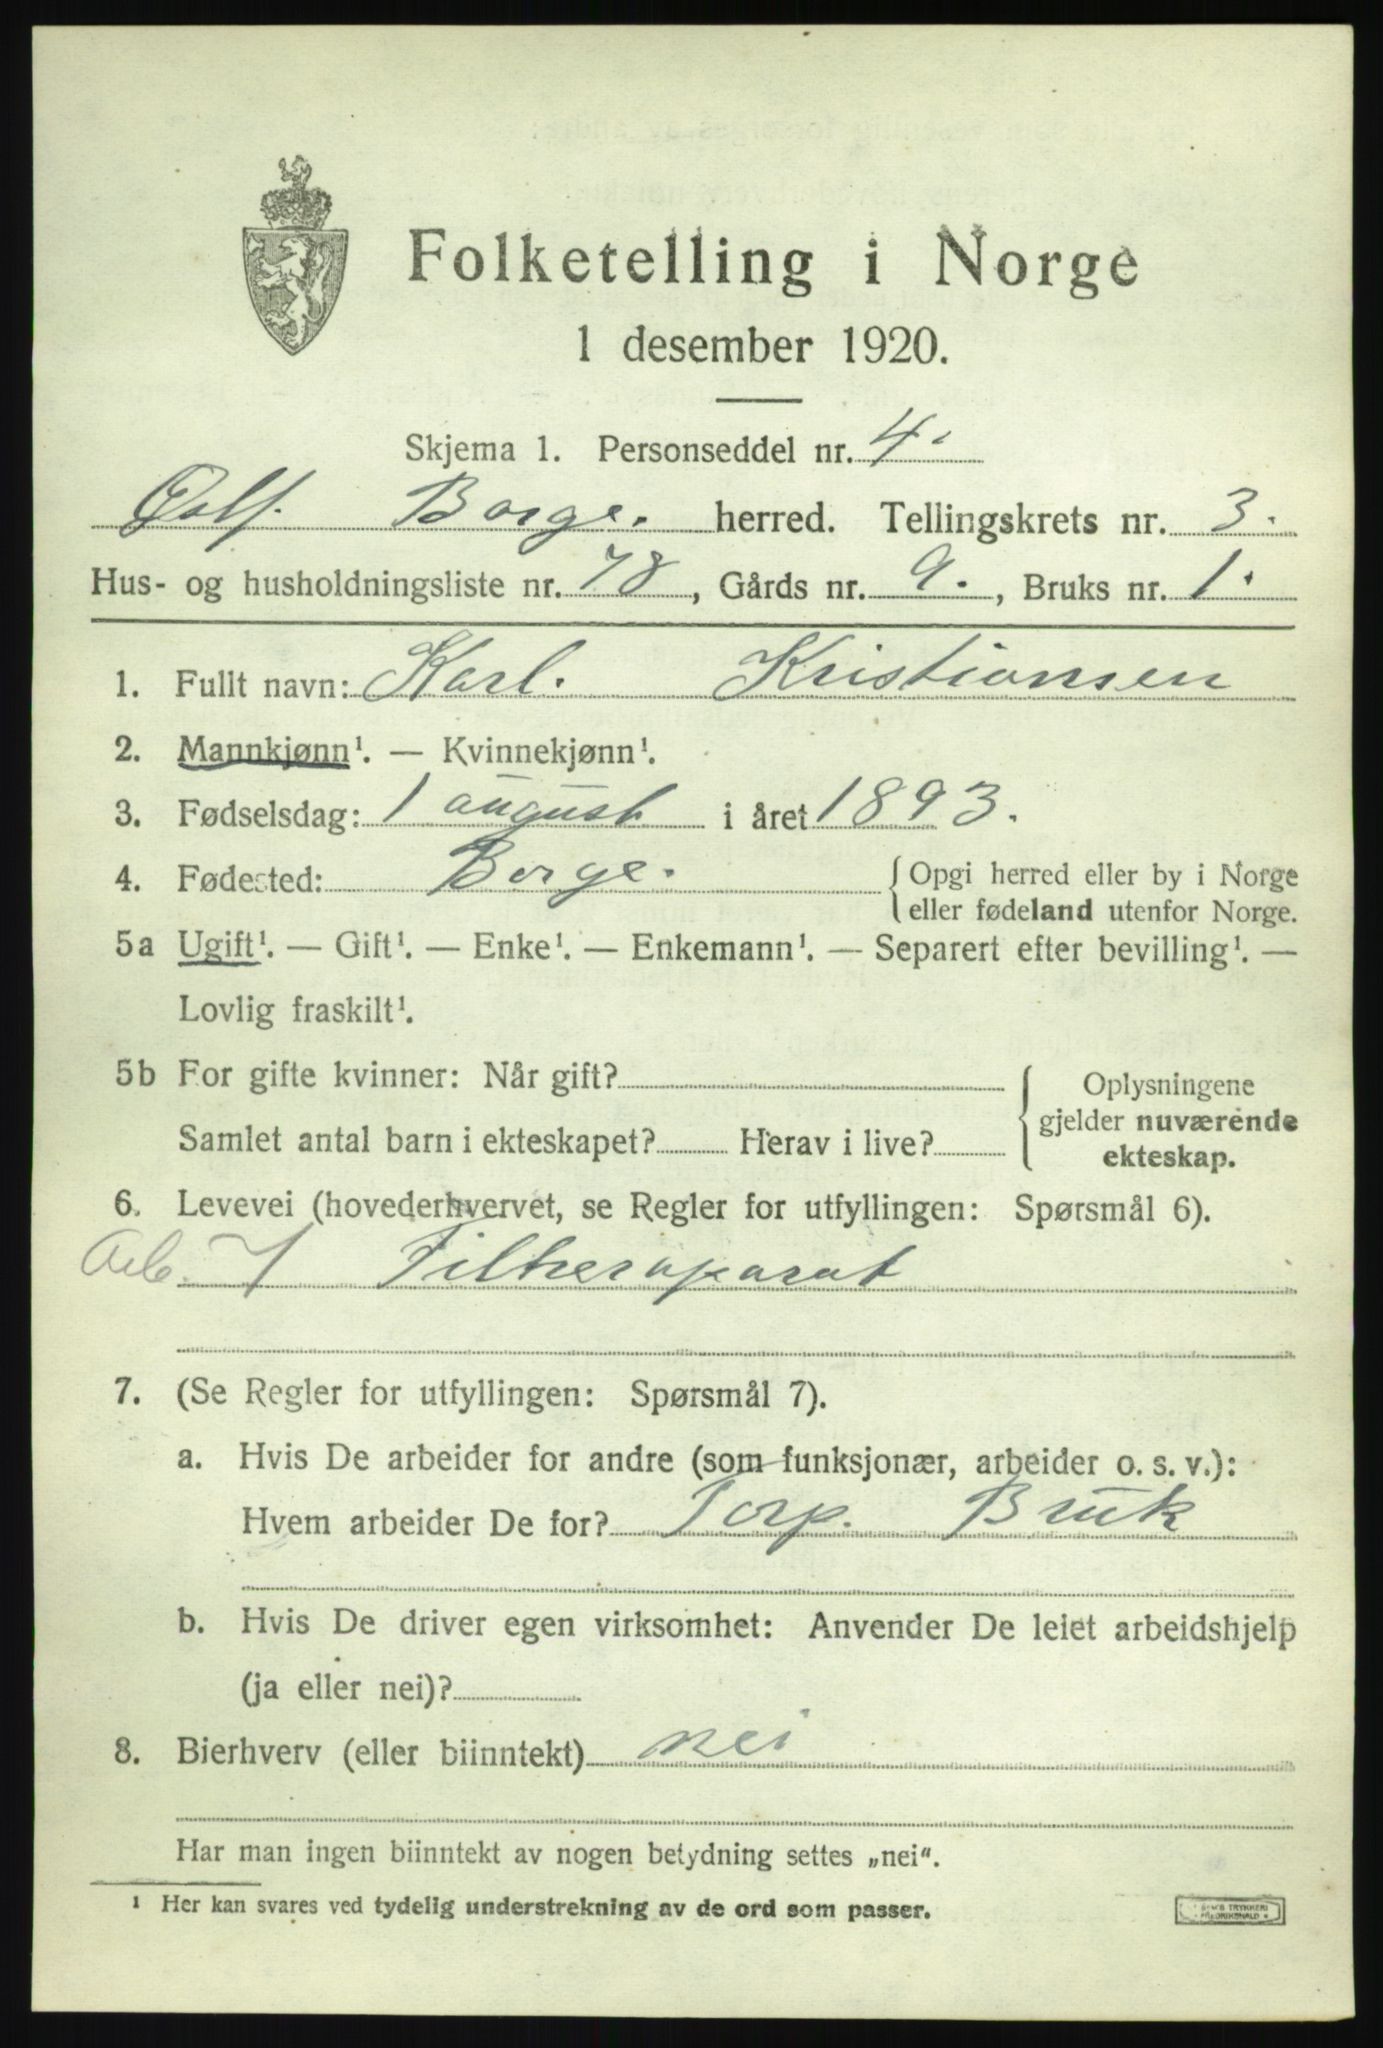 Folketelling i Norge
1 desember 1920.
Skjema 1. Personseddel nr. 4.
Østf. Borge. herred. Tellingskrets nr. 3.
Hus- og husholdningsliste nr. 78, Gårds nr. 9., Bruks nr. 1.
1. Fullt navn: Karl. Kristiansen
2. Mannkjønn¹. — Kvinnekjønn¹.
3. Fødselsdag: 1 august i året 1893.
4. Fødested: Borge. { Opgi herred eller by i Norge
eller fødeland utenfor Norge.
5a Ugift¹. — Gift¹. — Enke¹. — Enkemann¹. — Separert efter bevilling¹. —
Lovlig fraskilt¹.
5b For gifte kvinner: Når gift? { Oplysningene
gjelder nuværende
Samlet antal barn i ekteskapet? Herav i live?
ekteskap.
6. Levevei (hovederhvervet, se Regler for utfyllingen: Spørsmål 6).
Arb. I Filtreraparat
7. (Se Regler for utfyllingen: Spørsmål 7).
a. Hvis De arbeider for andre (som funksjonær, arbeider o. s. v.):
Hvem arbeider De for? Torp. Bruk
b. Hvis De driver egen virksomhet: Anvender De leiet arbeidshjelp
(ja eller nei)?
8. Bierhverv (eller biinntekt) nei
Har man ingen biinntekt av nogen betydning settes „nei".
¹ Her kan svares ved tydelig understrekning av de ord som passer.
TRYKKERI